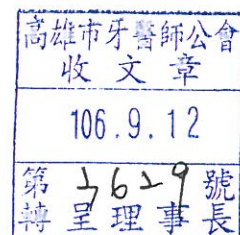 高雄市牙醫師公會
收文章
106.9.12
第3629號
轉呈理事長